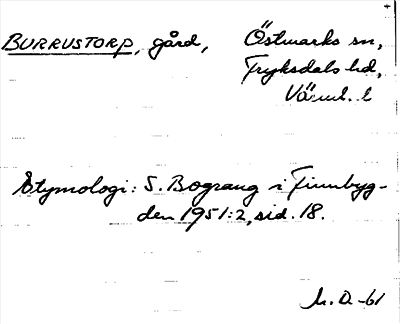 BURRUSTORP, gård, Östmarks sn,
Fryksdals hd,
Värml. l
Etymologi: S. Bograng i Finnbyg-
den 1951:2, sid. 18.
M.O. -61